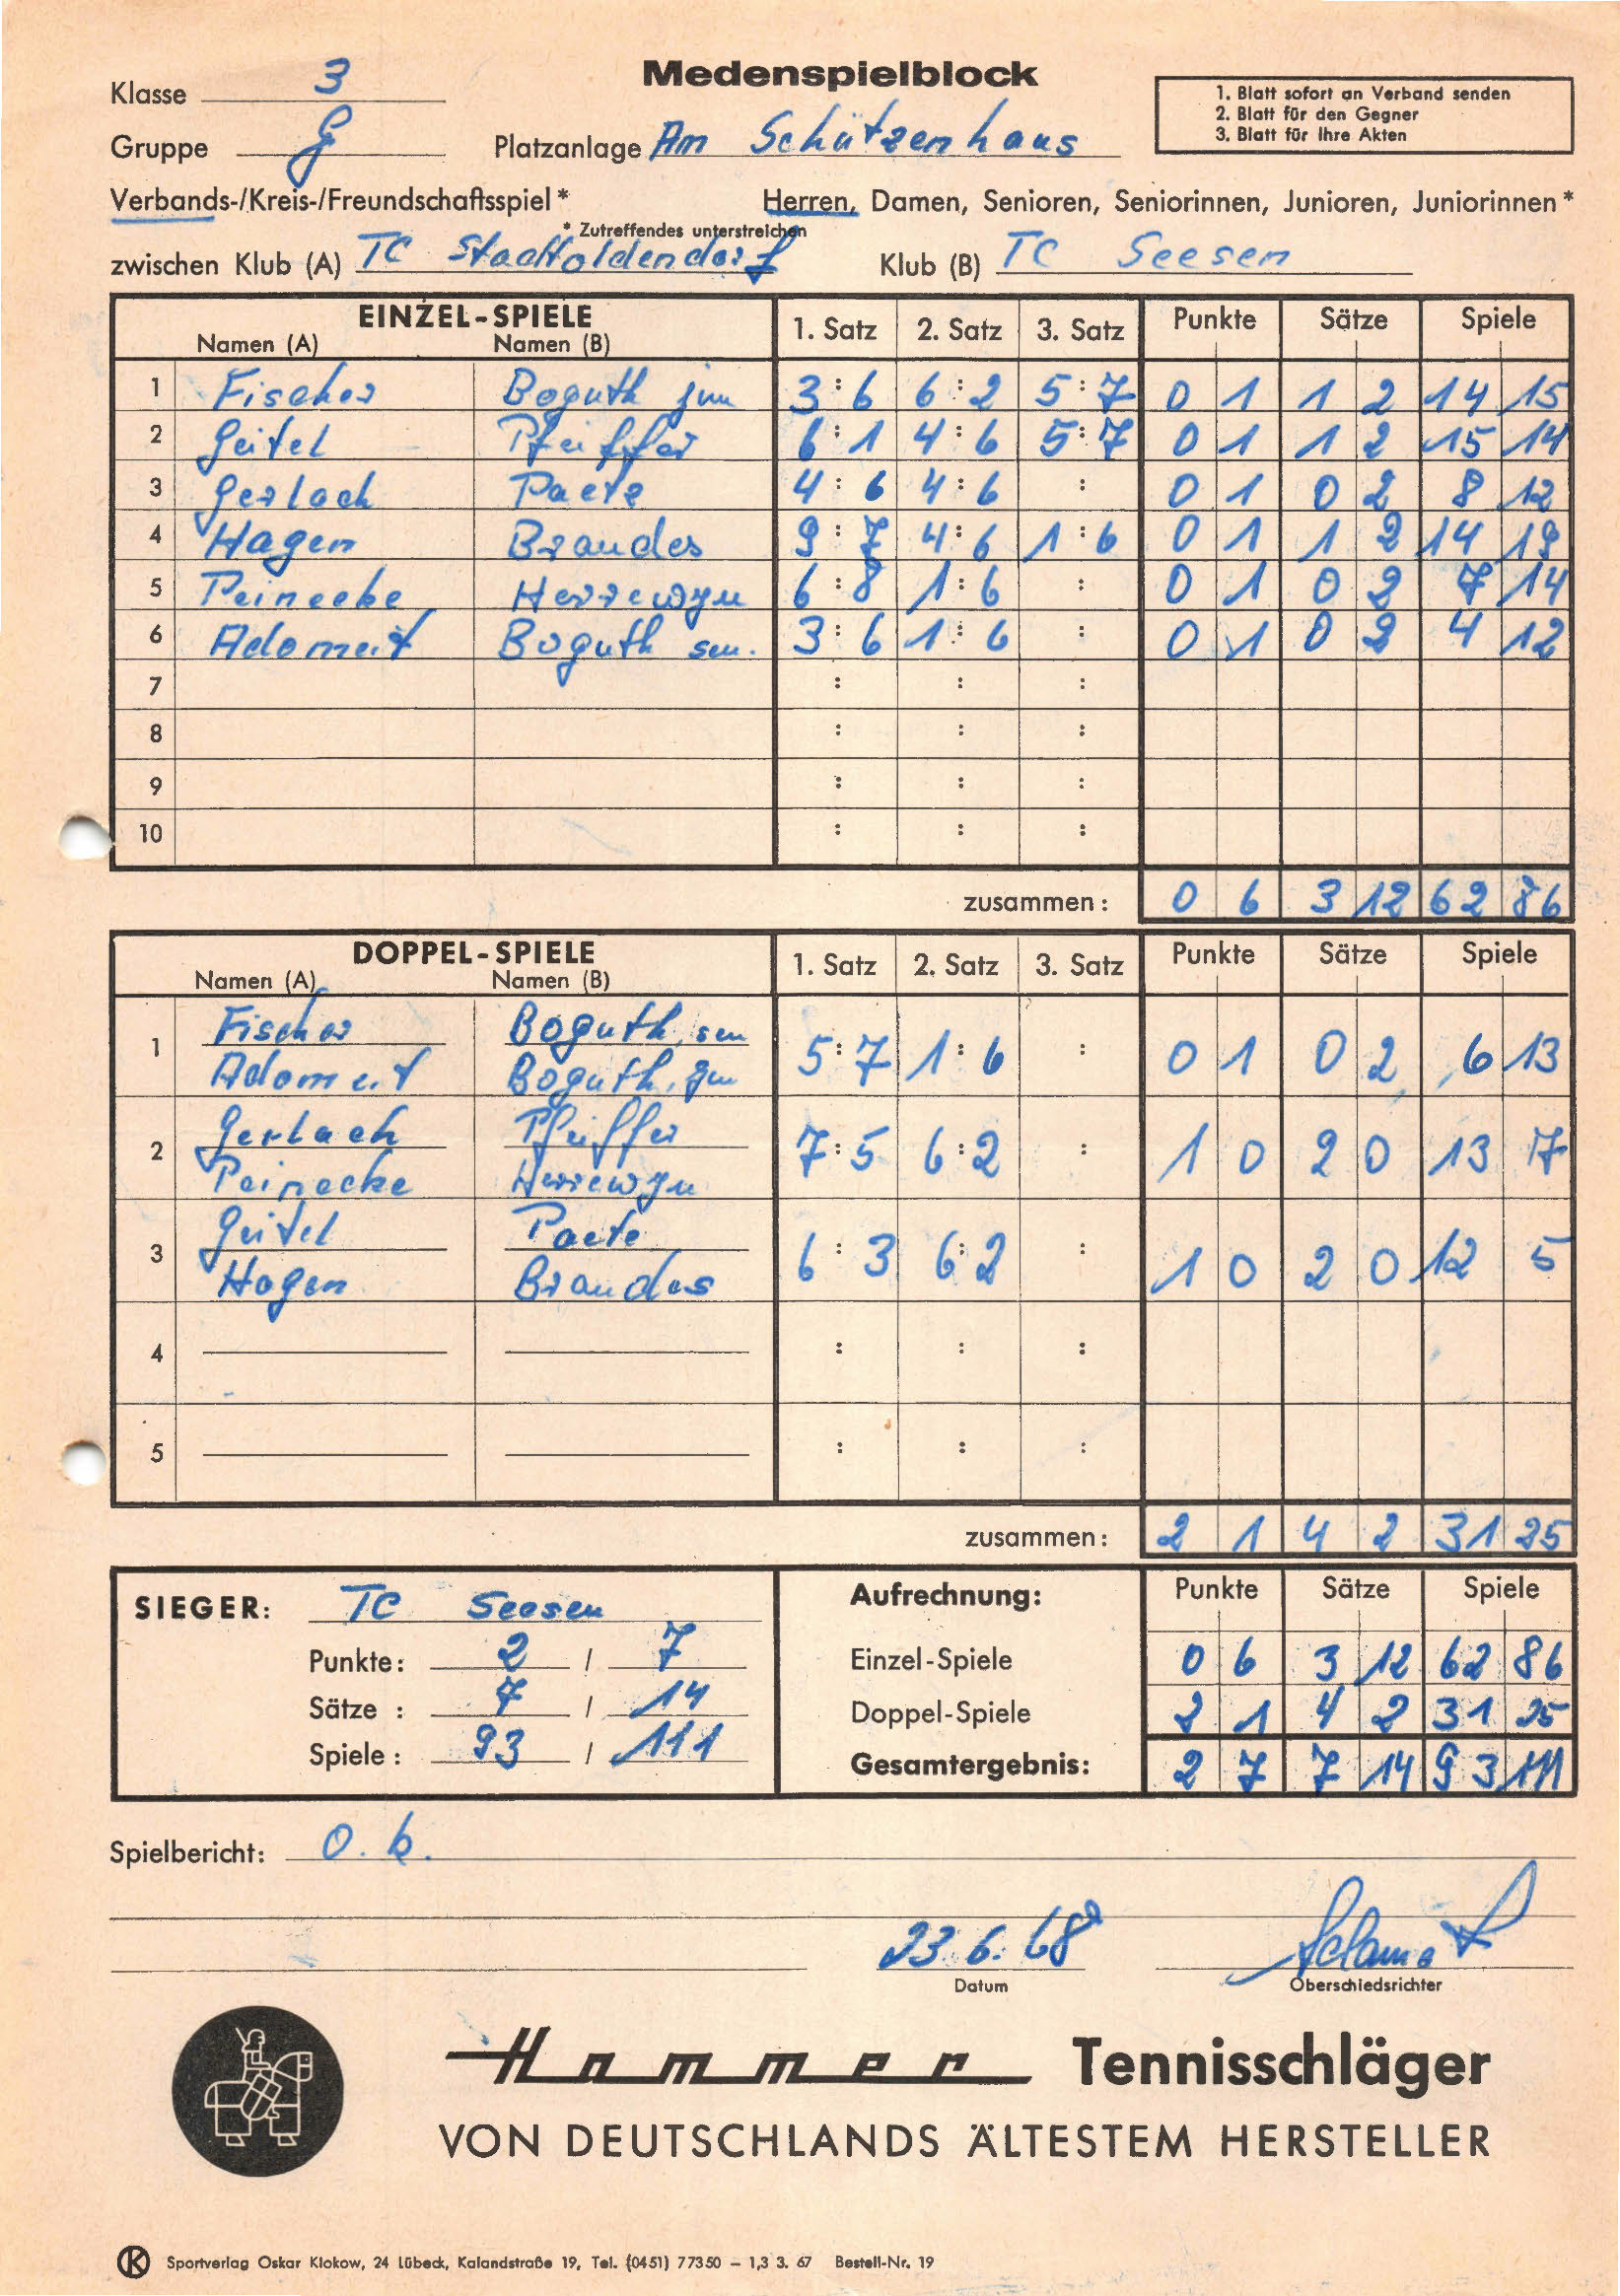 Medenspielblock
Klasse 3
Gruppe G
Platzanlage Am Schützenhaus
1. Blatt sofort an Verband senden
2. Blatt für den Gegner
3. Blatt für Ihre Akten
Verbands-/Kreis-/Freundschaftsspiel * Herren, Damen, Senioren, Seniorinnen, Junioren, Juniorinnen *
* Zutreffendes unterstreichen
zwischen Klub (A) TC Stadtoldendorf Klub (B) TC Seesen
EINZEL-SPIELE 1. Satz 2. Satz 3. Satz Punkte Sätze Spiele
Namen (A) Namen (B)
1 Fischer Boguth jun 3:6 6:2 5:7 0 1 1 2 14 15
2 Geitel Pfeiffer 6:1 4:6 5:7 0 1 1 2 15 14
3 Gerlach Paete 4:6 4:6 : 0 1 0 2 8 12
4 Hagen Brandes 9:7 4:6 1:6 0 1 1 2 14 19
5 Peinecke Herrewyn 6:8 1:6 : 0 1 0 2 7 14
6 Adomeit Boguth sen. 3:6 1:6 : 0 1 0 2 4 12
7 : : :
8 : : :
9 : : :
10 : : :
zusammen: 0 6 3 12 62 86
DOPPEL-SPIELE 1. Satz 2. Satz 3. Satz Punkte Sätze Spiele
Namen (A) Namen (B)
Fischer Boguth, sen
1 5:7 1:6 : 0 1 0 2 6 13
Adomeit Boguth, jun
Gerlach Pfeiffer
2 7:5 6:2 : 1 0 2 0 13 7
Peinecke Herrewyn
Geitel Paete
3 6:3 6:2 : 1 0 2 0 12 5
Hagen Brandes
4 : : :
5 : : :
zusammen: 2 1 4 2 31 25
SIEGER: TC Seesen
Punkte: 2 / 7
Sätze : 7 / 14
Spiele: 93 / 111
Aufrechnung: Punkte Sätze Spiele
Einzel-Spiele 0 6 3 12 62 86
Doppel-Spiele 2 1 4 2 31 25
Gesamtergebnis: 2 7 7 14 93 111
Spielbericht: o. k.
23.6.68 Adomeit
Datum Oberschiedsrichter
Hammer Tennisschläger
VON DEUTSCHLANDS ÄLTESTEM HERSTELLER
K Sportverlag Oskar Klokow, 24 Lübeck, Kalandstraße 19, Tel. (0451) 77350 – 1,3 3. 67 Bestell-Nr. 19